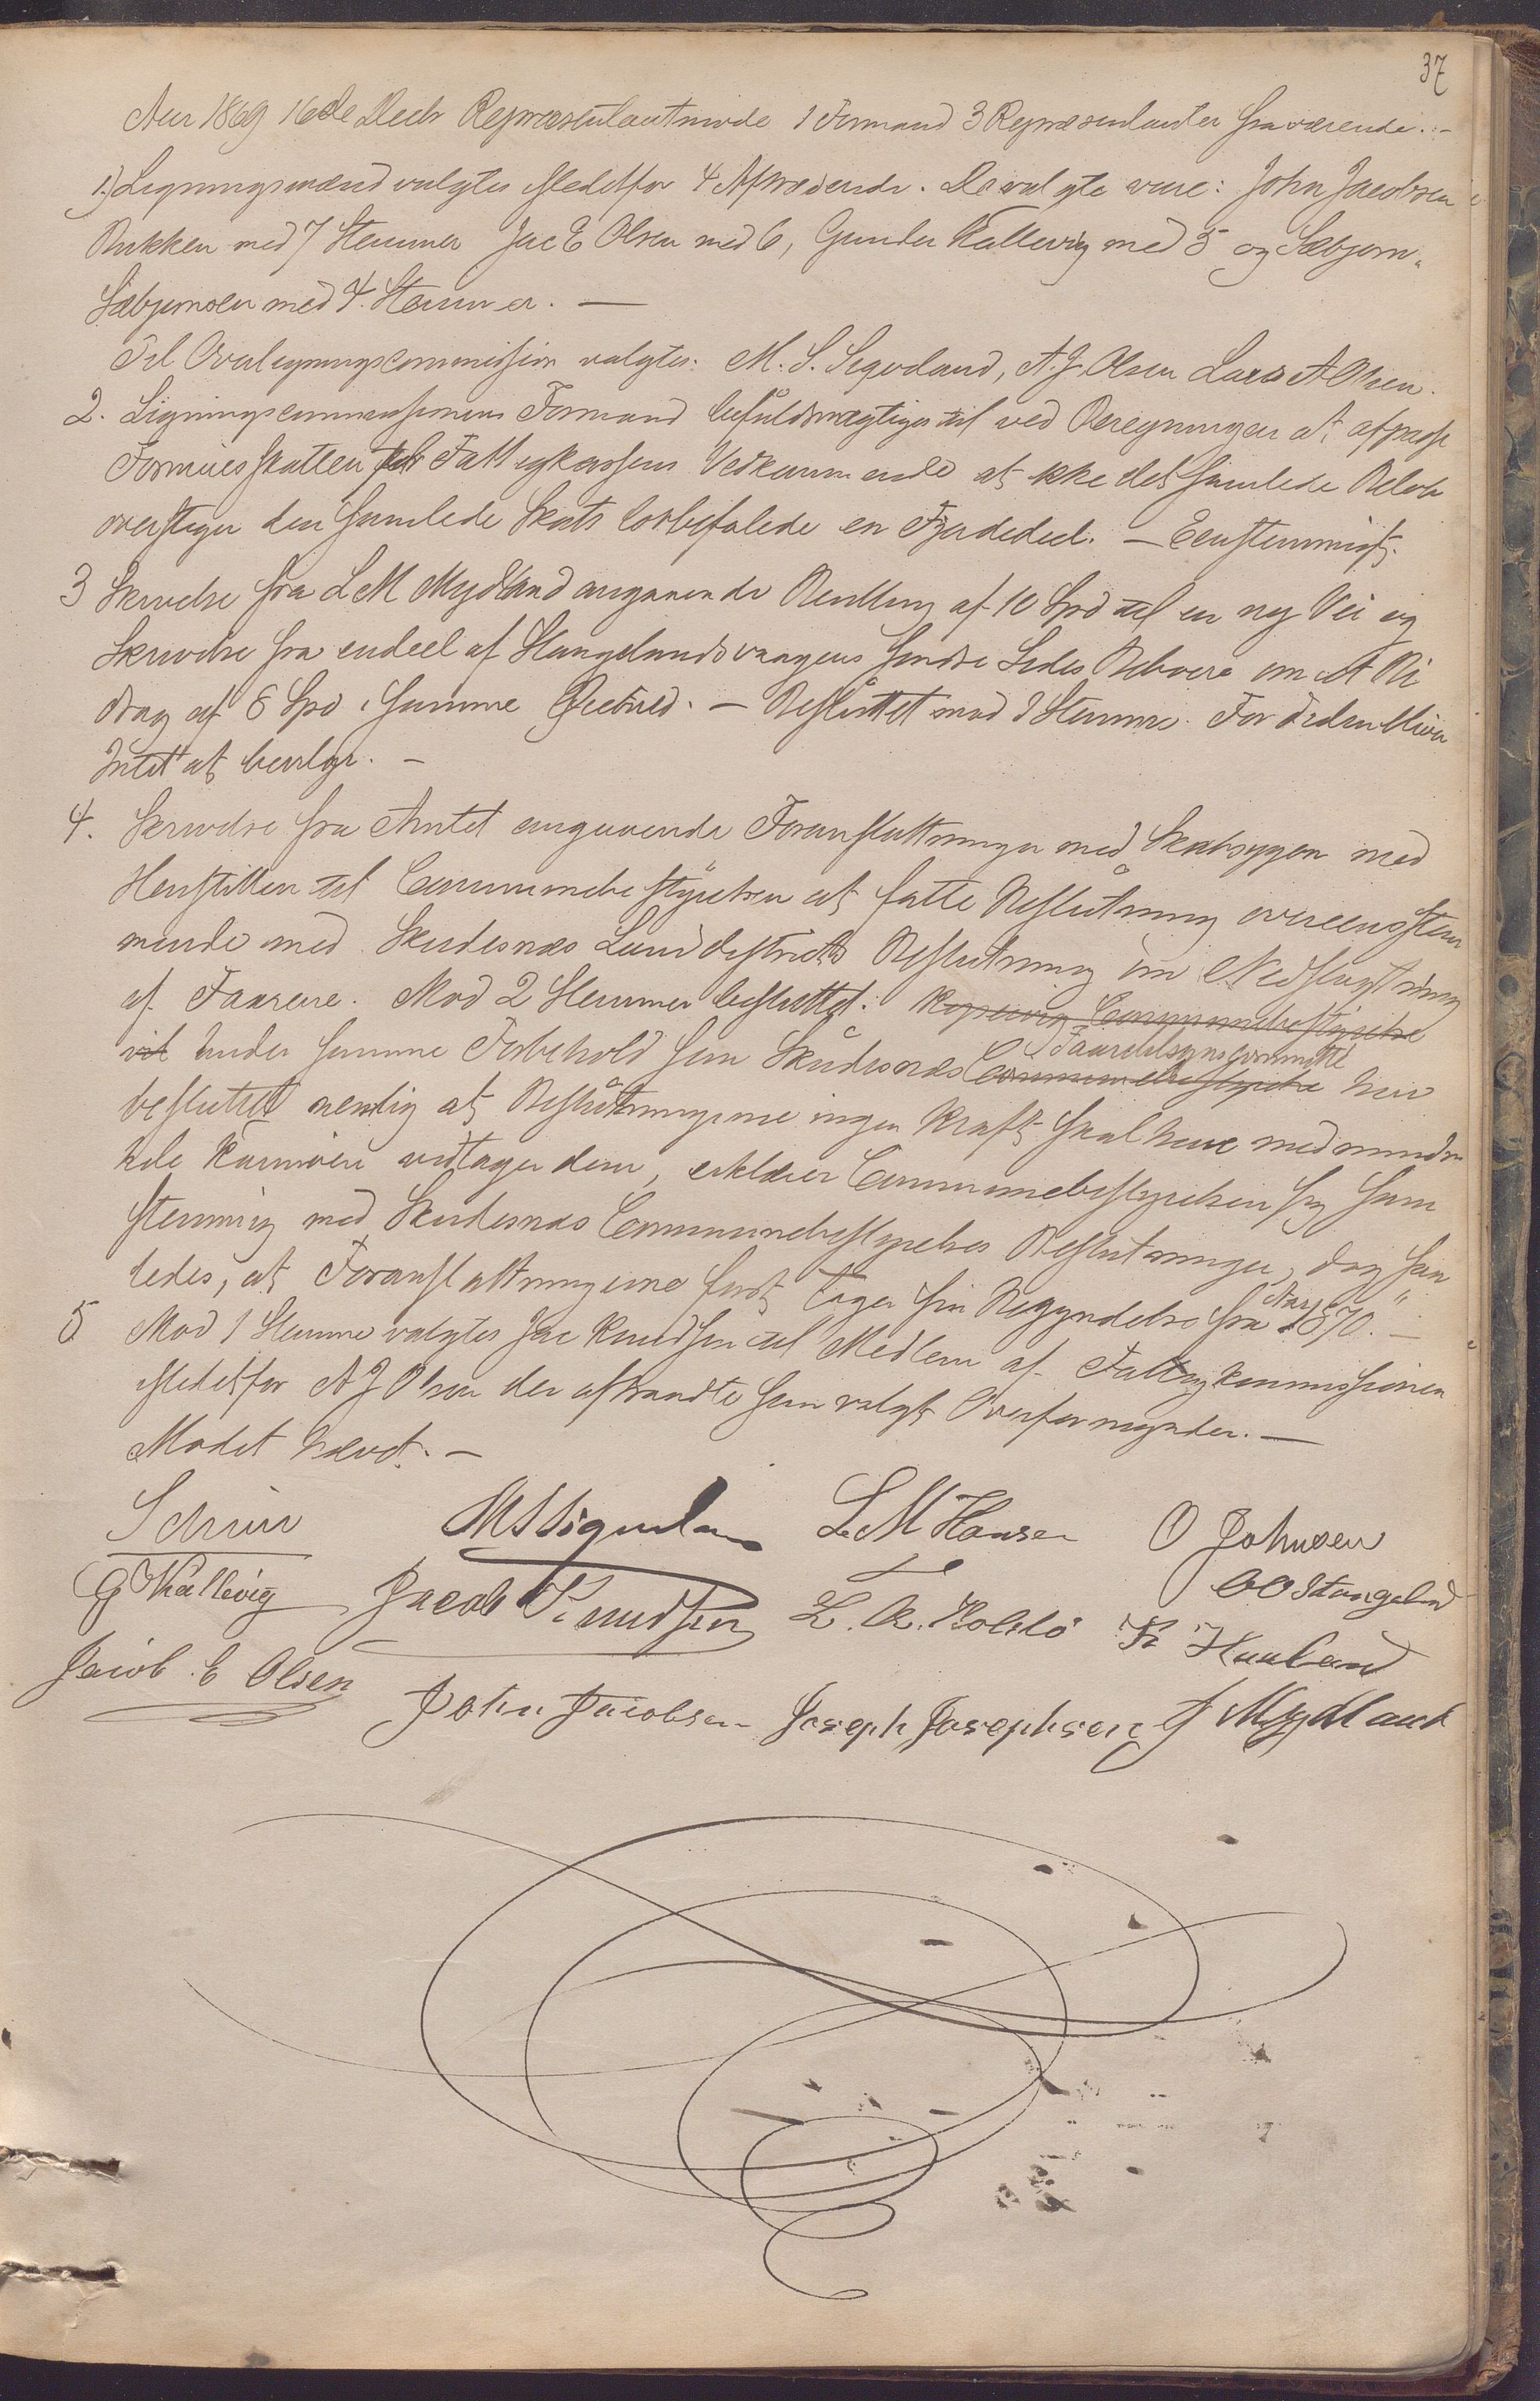 37
Aar 1869 16de Decb Repræsentantmøde 1 Formand 3 Repræsentanter fraværende. –
1.) Ligningsmænd valgtes istedetfor 4 Aftrædende. De valgte vare: John Jacobsen
Bukken med 7 Stemmer Jac E Olsen med 6, Gunder Kallevig med 5 og Sæbjørn
Sæbjørnsen med 4 Stemmer. –
Til Overligningscommission valgtes: M. S. Sigvaland, A. J. Olsen Lars A Olsen.
2. Ligningscommissionens Formand befuldmægtiges til ved Beregningen at afpasse
Formuesskatten for Fattigkassens Vedkommende at ikke det samlede Beløb
overstiger den samlede Skats lovbefalede en Fjerdedeel. – Eenstemmigt.
3 Skrivelse fra L M Mydland angaaende Bevilling af 10 Spd til en ny Vei og
Skrivelse fra endeel af Stangelandsvaagens søndre Sides Beboere om et Bi
drag af 8 Spd i samme Øiemed. – Besluttet mod 3 Stemmer. For Tiden bliver
Intet at bevilge. –
4. Skrivelse fra Amtet angaaende Foranstaltninger med Skabsygen med
Henstillen til Communebestyrelsen at fatte Beslutning overeensstem
mende med Skudesnæs Landdistrikts Beslutning om Nedslagtning
af Faarene. Mod 2 Stemmer besluttet: Kopervig Communebestyrelse
vil Under samme Forbehold som Skudesnæs Communebestyrelse Faaretilsynscommitte har
besluttet nemlig at Beslutningerne ingen Kraft skal have medmindre
hele Karmøen vedtager dem, erklærer Communebestyrelsen sig sam
stemmig med Skudesnæs Communebestyrelses Beslutninger, dog saa
ledes, at Foranstaltningerne først tager sin Begyndelse fra Aar 1870. –
5 Mod 1 Stemme valgtes Jac Knudsen til Medlem af Fattigkommissionen
istedetfor A J Olsen der aftraadte som valgt Overformynder. –
Mødet hævet. –
Schiør M S Sigvaland L. M Hansen O Johnsen
G Kallevig Jacob Knudsen L. A. Holstø O O Stangeland
K Haaland
Jacob E Olsen John Jacobsen Joseph Josephsen J Mydland